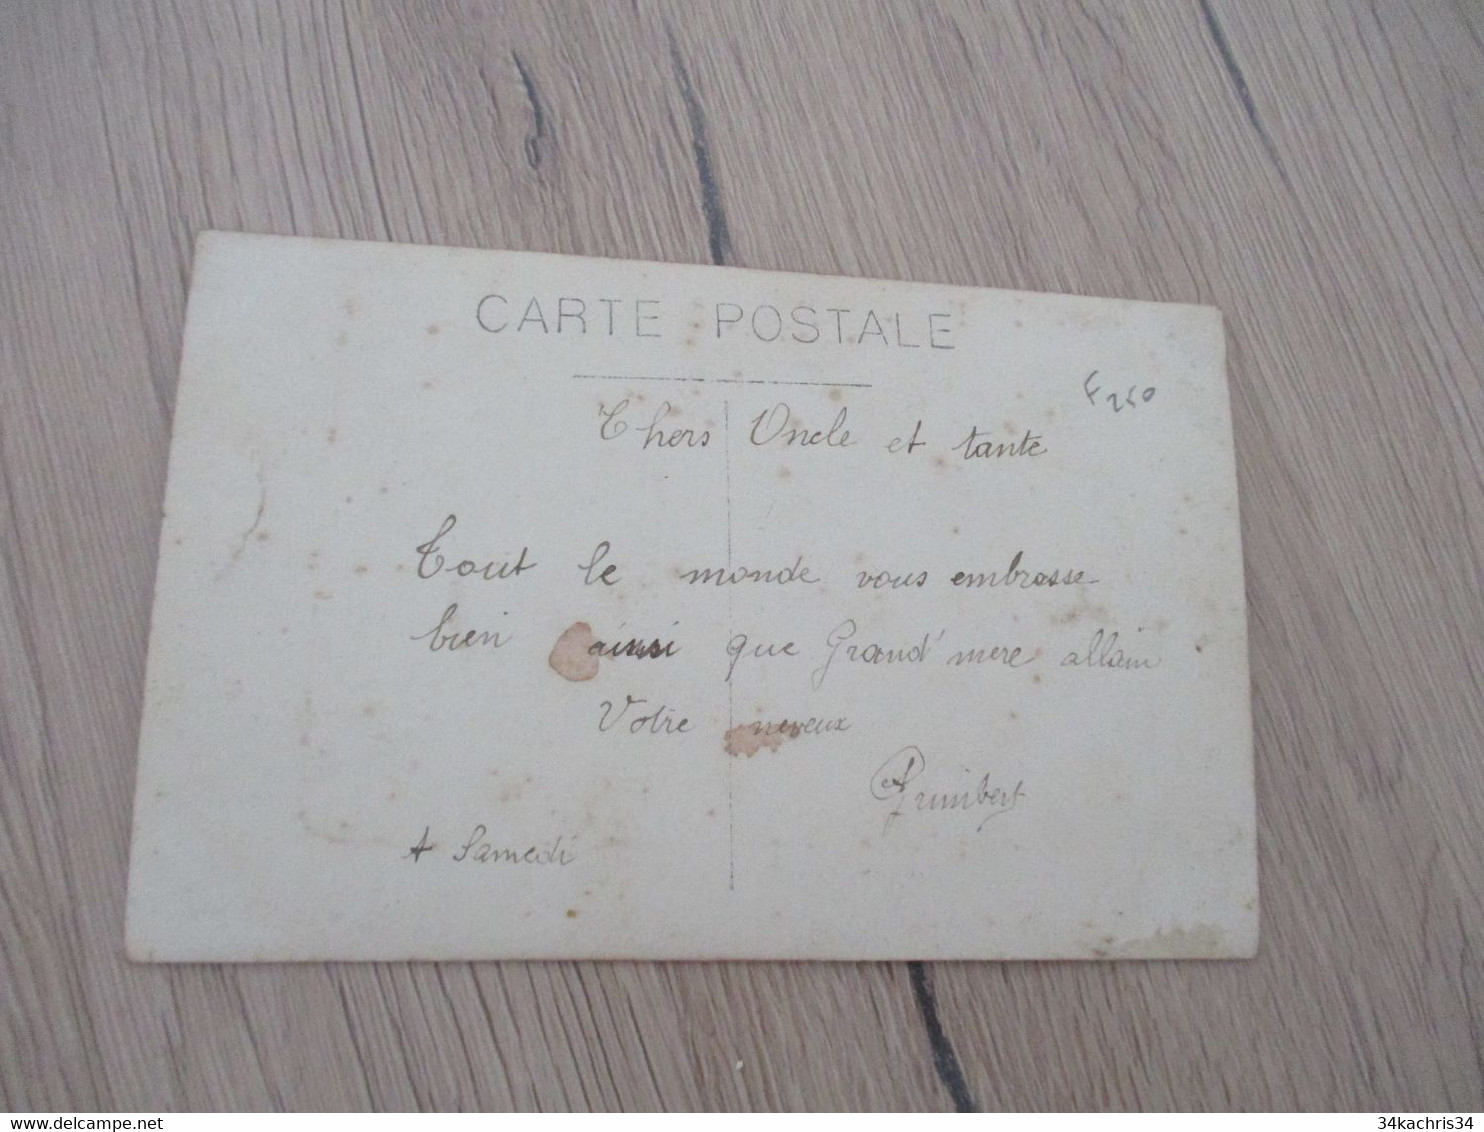 CARTE POSTALE
Chers Oncle et tante
Tout le monde vous embrasse
bien ainsi que Grand'mere allain
Votre neveux
A Samedi
34kachris34